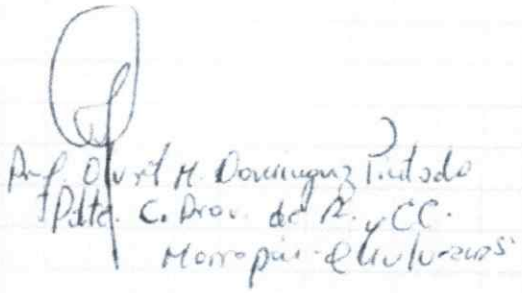 Prof. H. Dominguez Tintado
Pdte. C. Prov. de R. y CC.
Morropón-Chulucanas